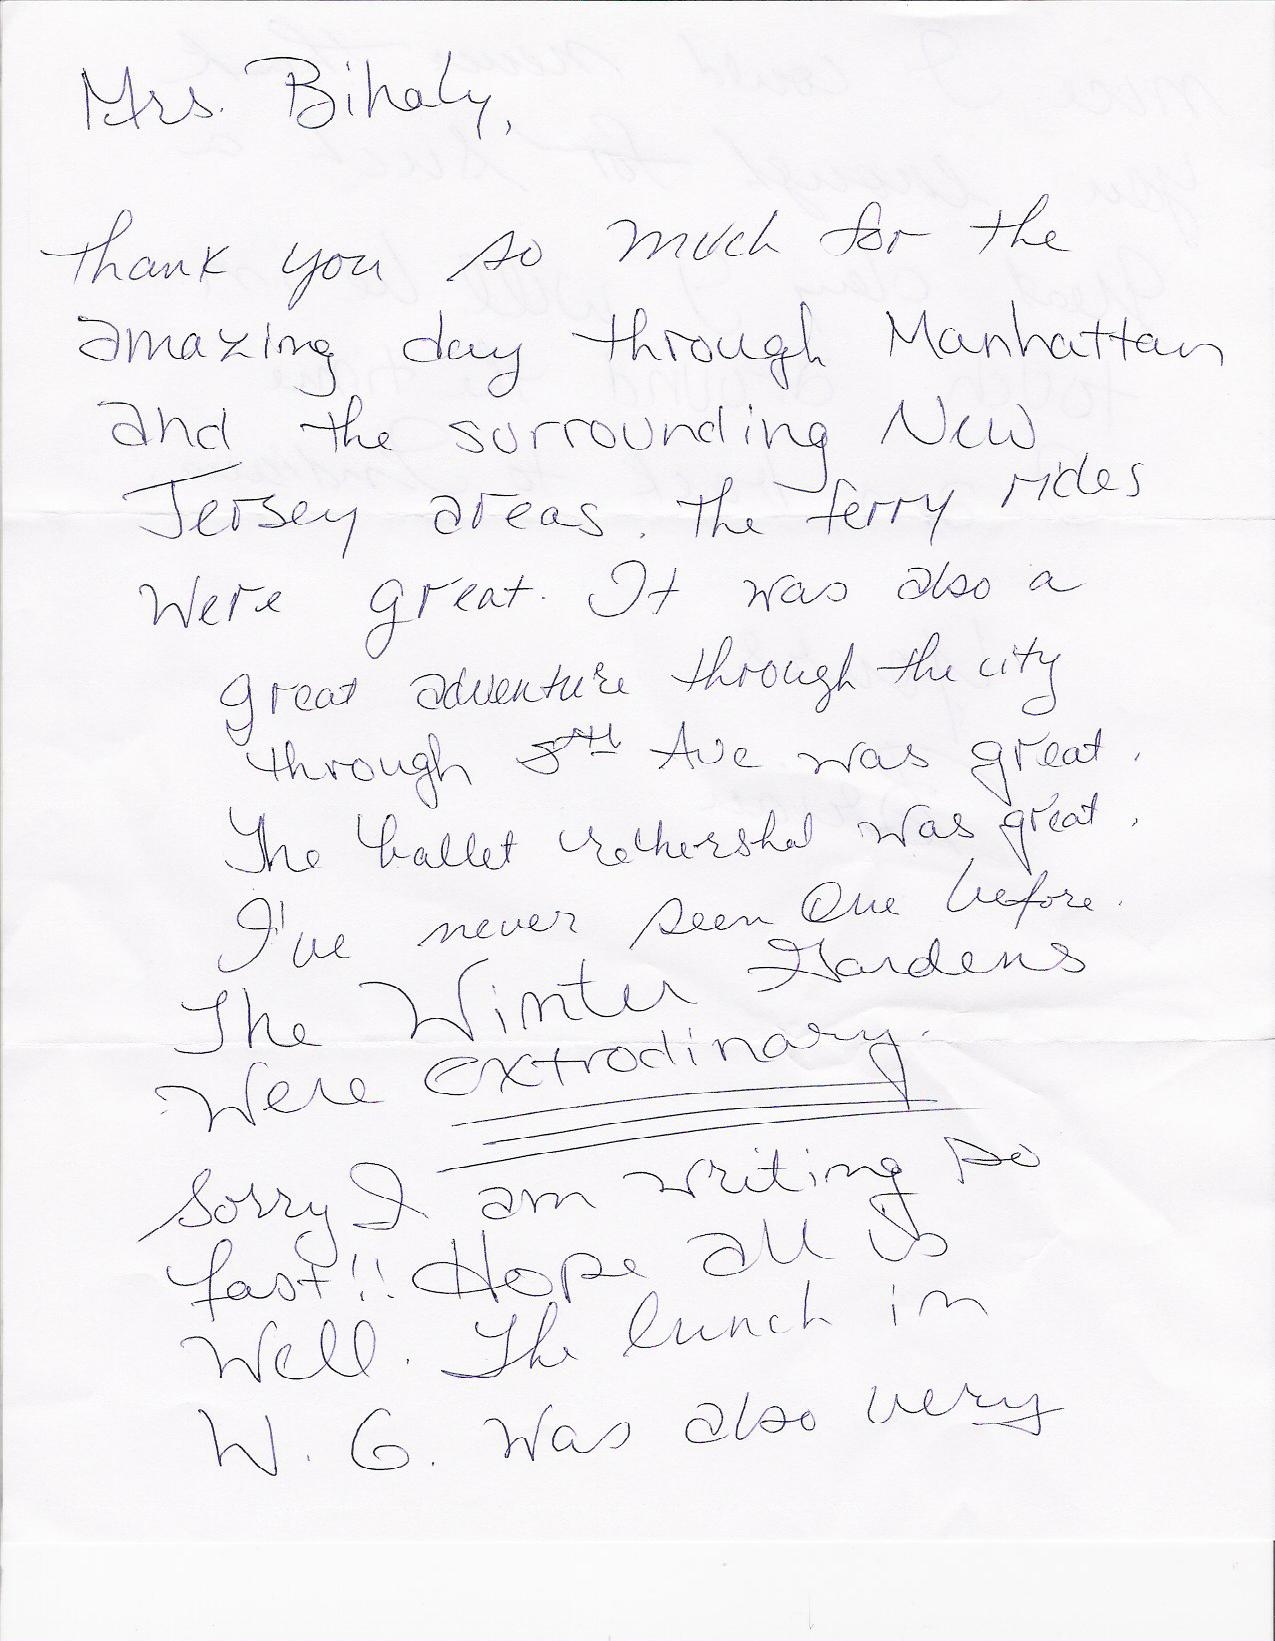 Mrs. Bihaly,
thank you so much for the
amazing day through Manhattan
and the surrounding New
Jersey areas. The ferry rides
were great. It was also a
great adventure through the city
through 5TH Ave was great.
The ballet rethershal was great.
I've never seen One before.
The Winter Gardens
Were extrodinary.
Sorry I am writing so
fast!! Hope all is
Well. The lunch in
W. G. was also very